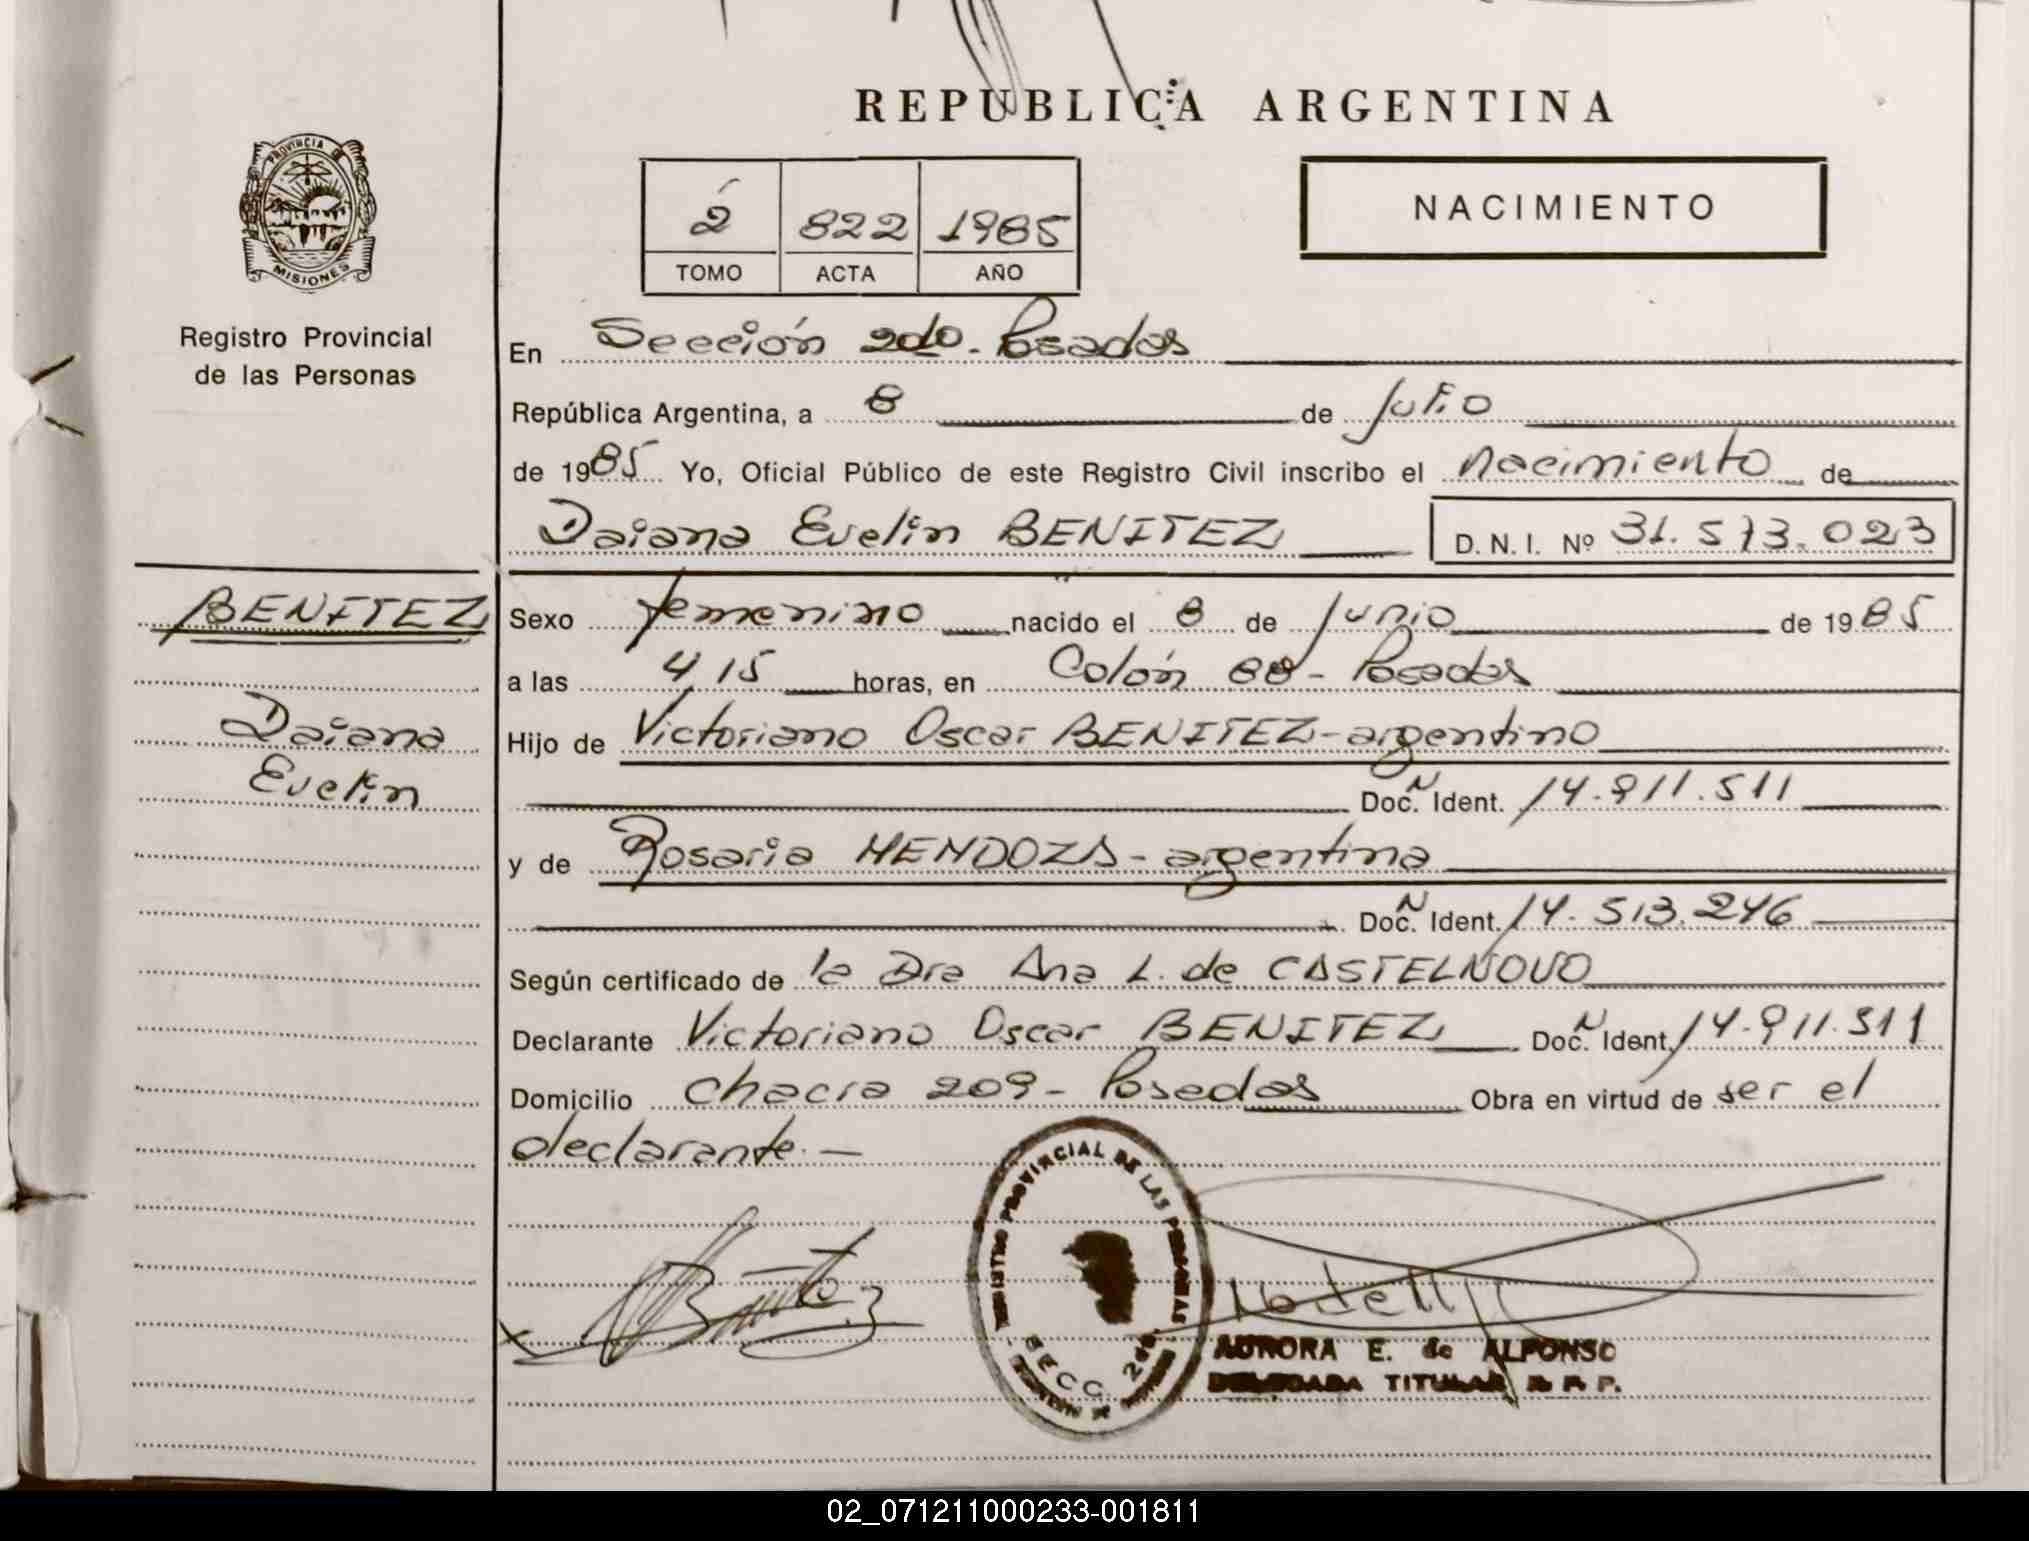 REPUBLICA ARGENTINA
PROVINCIA DE
MISIONES
Registro Provincial
de las Personas
2 822 1985
TOMO ACTA AÑO
NACIMIENTO
En Sección 2do. Posadas
República Argentina, a 8 de Julio
de 1985 Yo, Oficial Público de este Registro Civil inscribo el nacimiento de
Daiana Evelin BENITEZ D. N. I. Nº 31.573.023
BENITEZ
Daiana
Evelin
Sexo femenino nacido el 8 de Junio de 1985
a las 4 15 horas, en Colón 88 - Posadas
Hijo de Victoriano Oscar BENITEZ - argentino
Doc. N Ident. 14.911.511
y de Rosaria MENDOZA - argentina
Doc. N Ident. 14.513.246
Según certificado de la Dra Ana L. de CASTELNOVO
Declarante Victoriano Oscar BENITEZ Doc. N Ident. 14.911.511
Domicilio Chacra 209 - Posadas Obra en virtud de ser el
declarante. —
REGISTRO PROVINCIAL DE LAS PERSONAS
SECC. 2da.
AURORA E. de ALFONSO
DELEGADA TITULAR R. P. P.
02_071211000233-001811